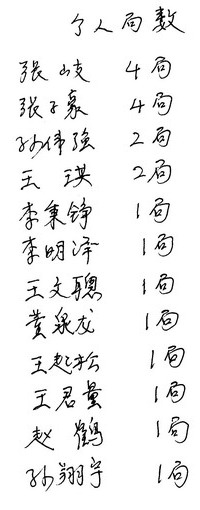 个人局数
张岐 4局
张子豪 4局
孙伟强 2局
王琪 2局
李秉铮 1局
李明泽 1局
王文聪 1局
黄泉龙 1局
王起松 1局
王君量 1局
赵鹤 1局
孙翔宇 1局